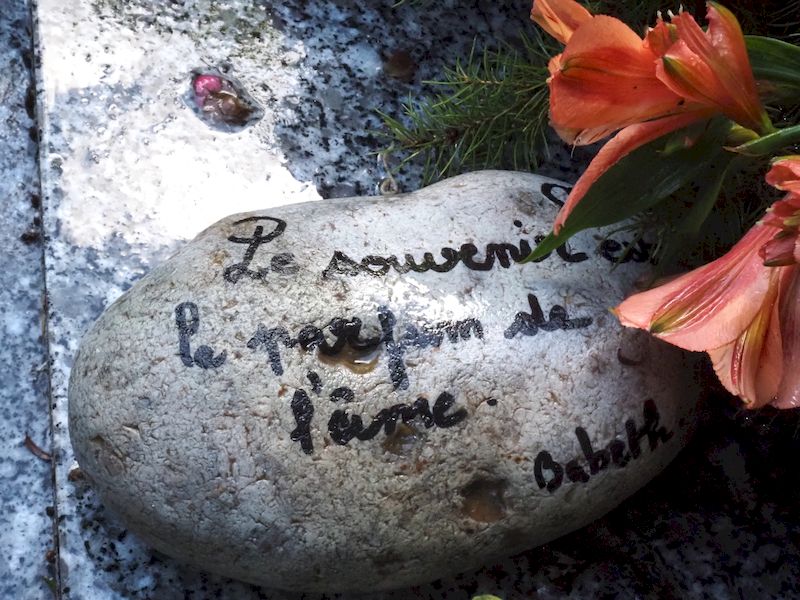 Le souvenir est
le parfum de
l'âme.
Babeth